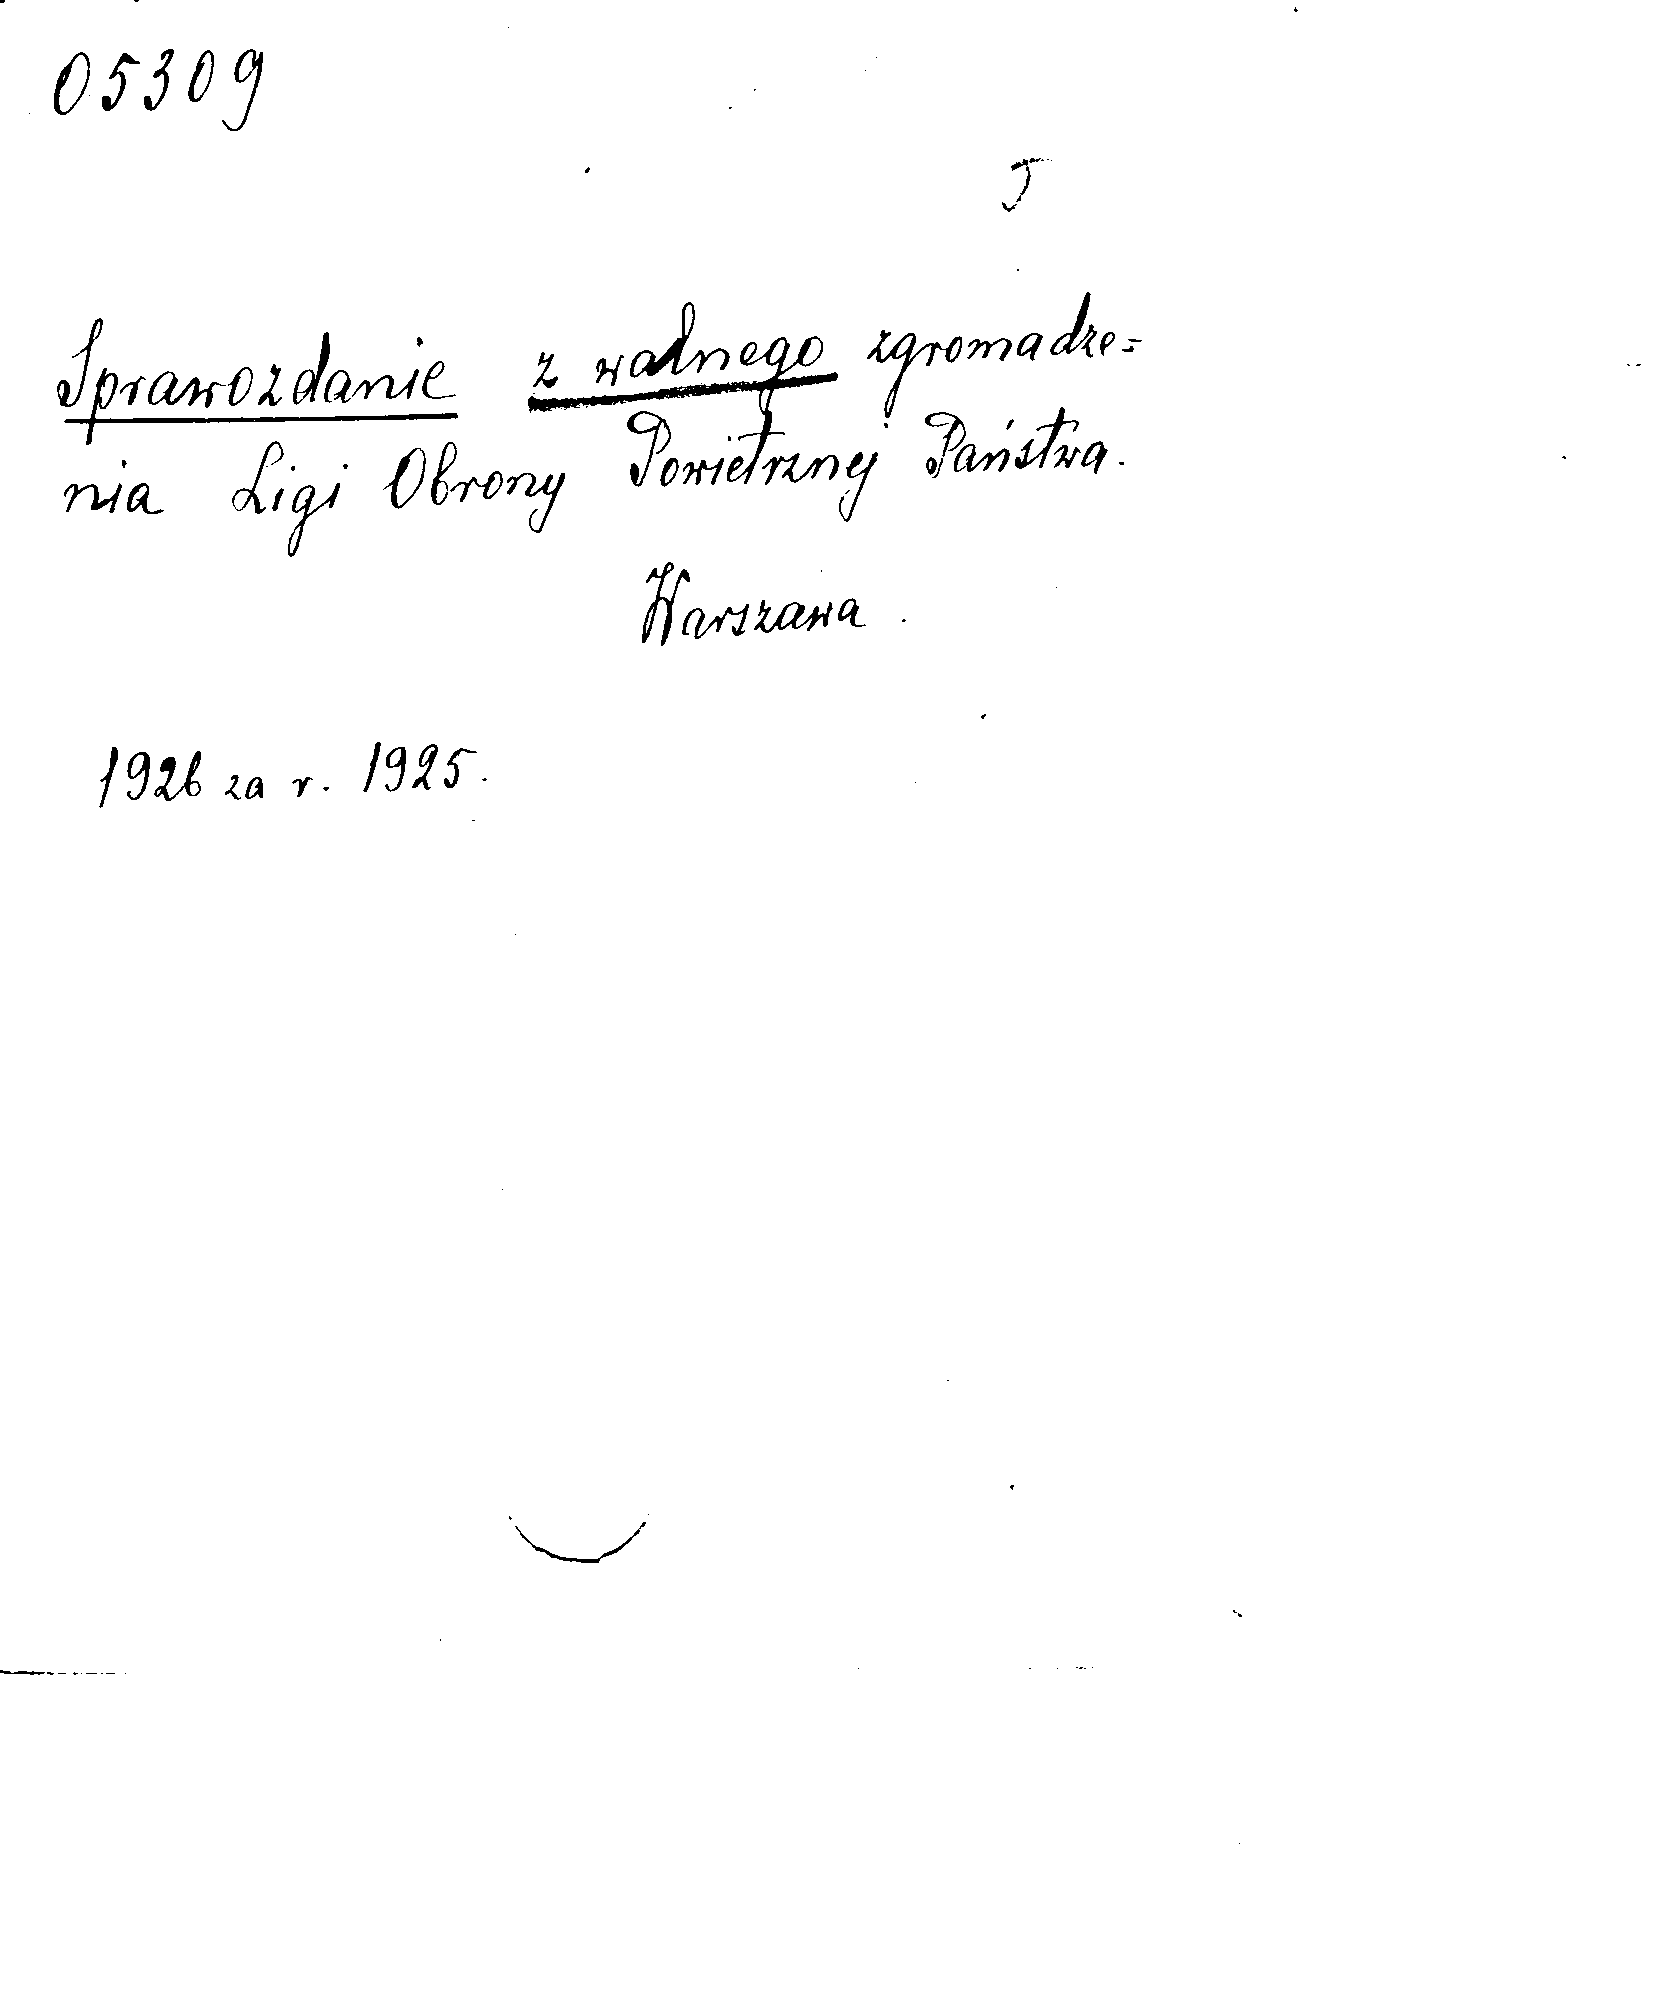 05309
J
Sprawozdanie z walnego zgromadze=
nia Ligi Obrony Powietrznej Państwa.
Warszawa.
1926 za r. 1925.